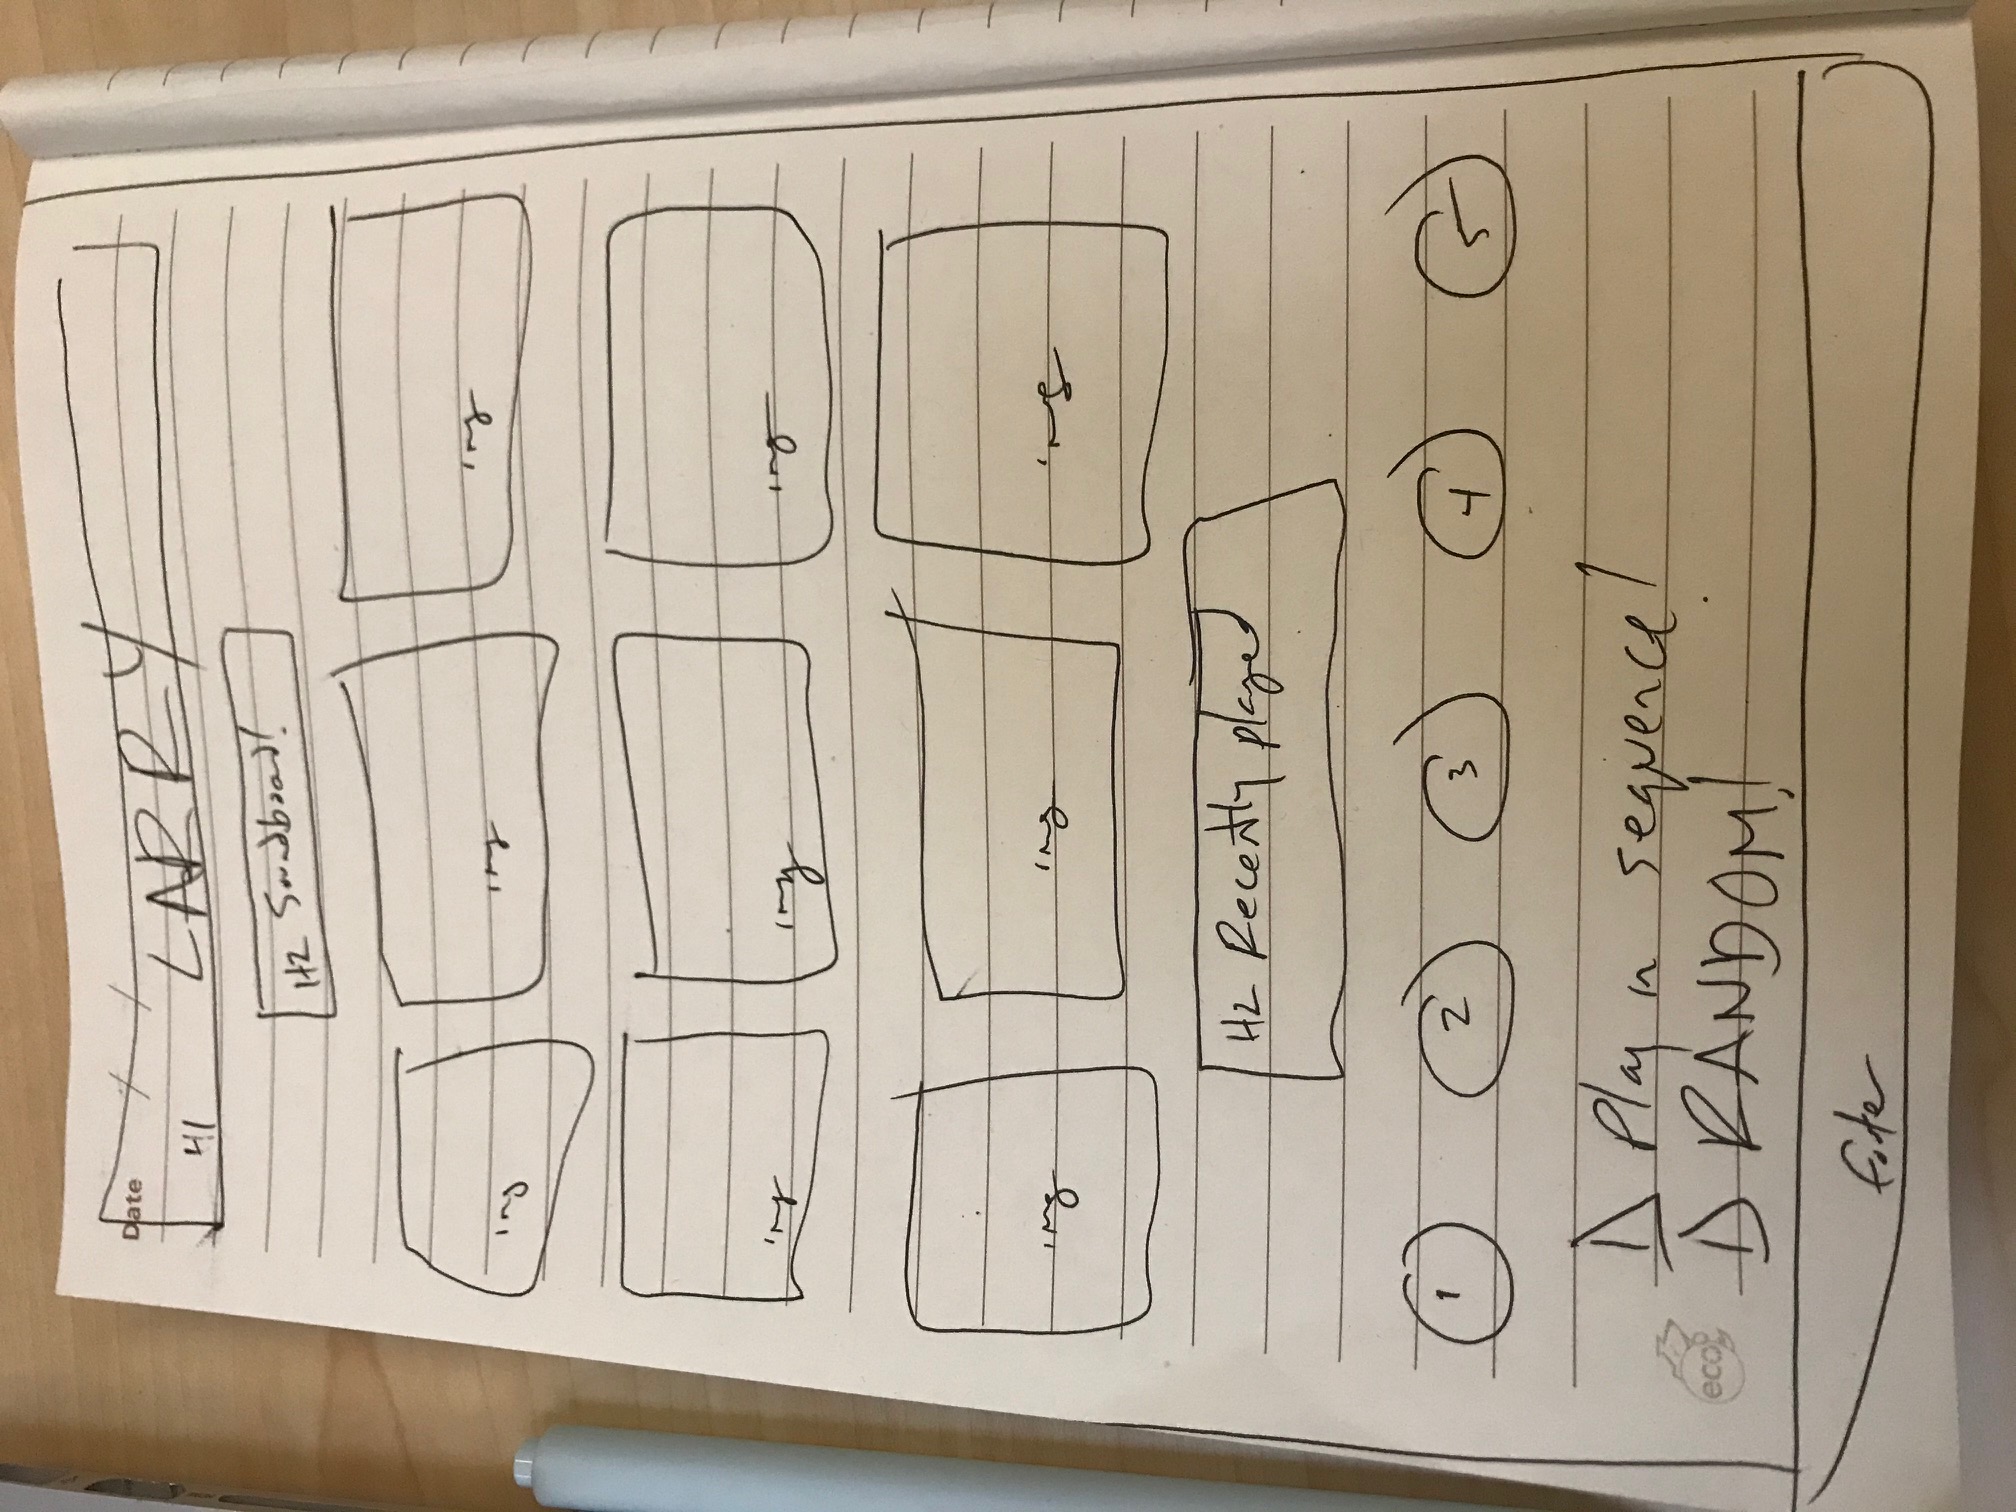 Date / /
H1 LARRY
H2 Soundboard!
img img img
img img img
img img img
H2 Recently played
1 2 3 4 5
Play in sequence!
RANDOM!
eco
footer